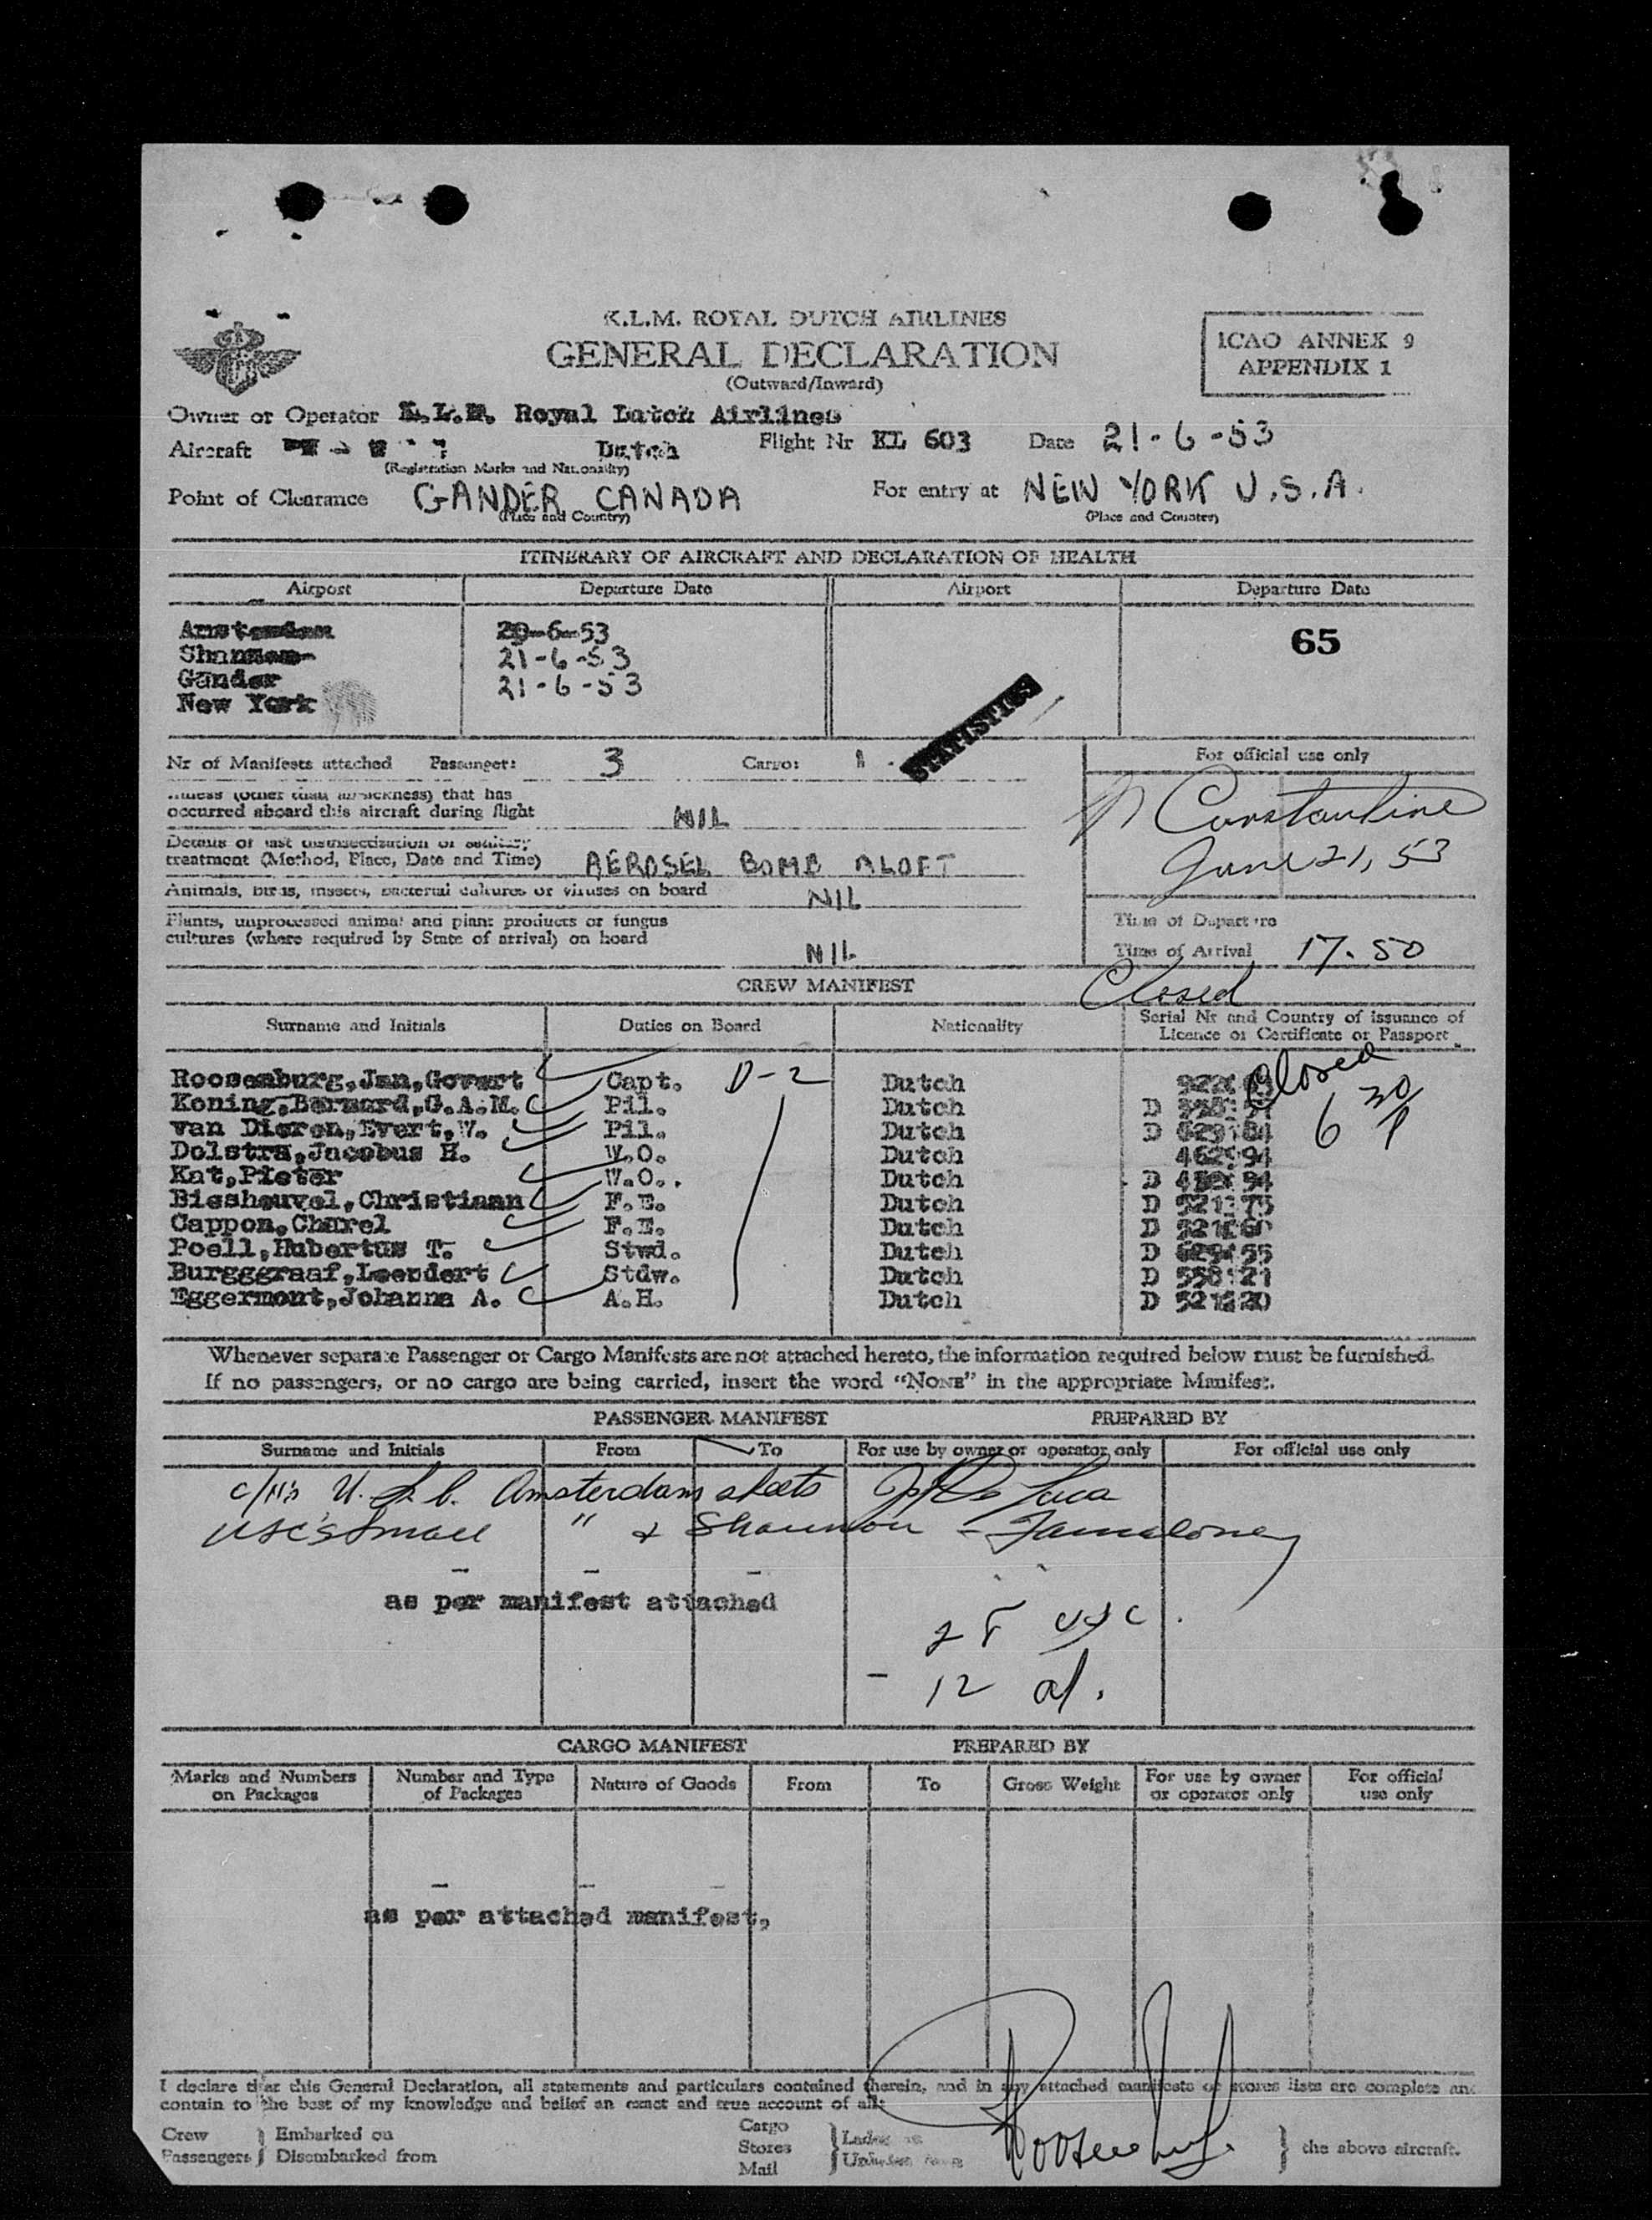 K.L.M. ROYAL DUTCH AIRLINES
GENERAL DECLARATION
(Outward/Inward)
ICAO ANNEX 9
APPENDIX 1
Owner or Operator K.L.M. Royal Dutch Airlines
Aircraft Dutch Flight Nr KL 603 Date 21-6-53
(Registration Marks and Nationality)
Point of Clearance GANDER CANADA For entry at NEW YORK U.S.A.
(Place and Country) (Place and Country)
ITINERARY OF AIRCRAFT AND DECLARATION OF HEALTH
Airport Departure Date Airport Departure Date
Amsterdam 20-6-53 65
Shannon 21-6-53
Gander 21-6-53
New York
STATISTICS
Nr of Manifests attached Passenger: 3 Cargo: 1 For official use only
Illness (other than airsickness) that has
occurred aboard this aircraft during flight NIL
Constantine
June 21, 53
Details of last disinsectization or sanitary
treatment (Method, Place, Date and Time) AEROSEL BOMB ALOFT
Animals, birds, insects, bacterial cultures or viruses on board NIL
Plants, unprocessed animal and plant products or fungus
cultures (where required by State of arrival) on board NIL
Time of Departure
Time of Arrival 17.50
CREW MANIFEST Closed
Surname and Initials Duties on Board Nationality Serial Nr and Country of issuance of
Licence or Certificate or Passport
Closed
6 30/P
Roosenburg, Jan, Govert Capt. D-2 Dutch
Koning, Bernard, G.A.M. Pil. Dutch D
van Dieren, Evert, W. Pil. Dutch D
Dolstra, Jacobus H. W.O. Dutch
Kat, Pieter W.O.. Dutch D
Biesheuvel, Christiaan F.E. Dutch D
Cappon, Charel F.E. Dutch D
Poell, Hubertus T. Stwd. Dutch D
Burgggraaf, Leendert Stdw. Dutch D
Eggermont, Johanna A. A.H. Dutch D
Whenever separate Passenger or Cargo Manifests are not attached hereto, the information required below must be furnished.
If no passengers, or no cargo are being carried, insert the word "NONE" in the appropriate Manifest.
PASSENGER MANIFEST PREPARED BY
Surname and Initials From To For use by owner or operator only For official use only
Amsterdam De Luca
" & Shannon -
as per manifest attached
usc
- 12 al.
CARGO MANIFEST PREPARED BY
Marks and Numbers on Packages Number and Type of Packages Nature of Goods From To Gross Weight For use by owner or operator only For official use only
as per attached manifest,
I declare that this General Declaration, all statements and particulars contained therein, and in any attached manifests or stores lists are complete and
contain to the best of my knowledge and belief an exact and true account of all:
Crew Embarked on Cargo Laden on
Passengers Disembarked from Stores Unladen from the above aircraft.
Mail
Roosenburg